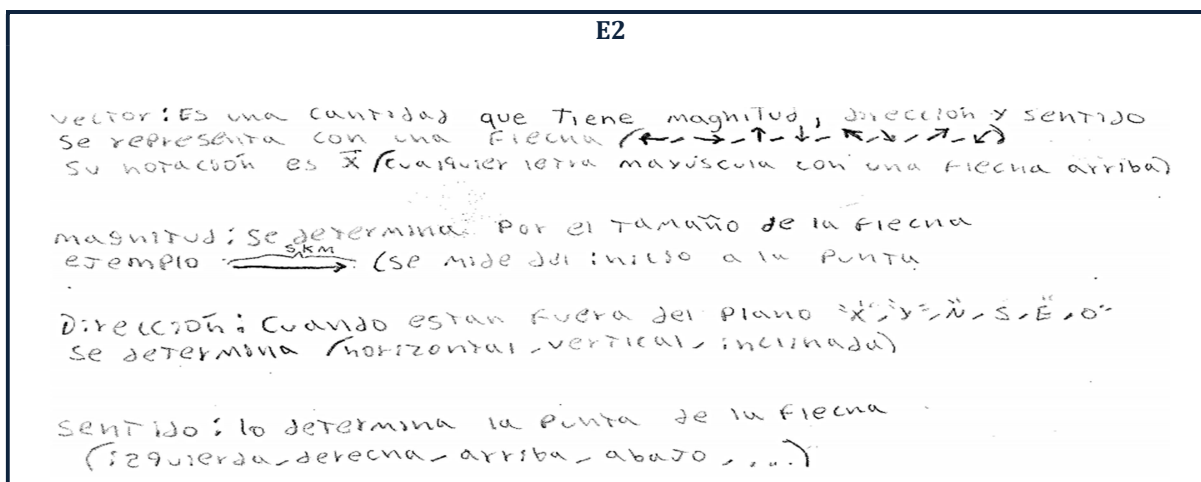 E2
vector: Es una cantidad que tiene magnitud, dirección y sentido
se representa con una flecha (←, →, ↑, ↓, ↖, ↘, ↗, ↙)
su notación es x⃗ (cualquier letra mayúscula con una flecha arriba)
magnitud: se determina por el tamaño de la flecha
5 KM
ejemplo (se mide del inicio a la punta
Dirección: Cuando estan fuera del plano "x", "y", "N", S, "E", O"
se determina (horizontal, vertical, inclinada)
sentido: lo determina la punta de la flecha
(izquierda, derecha, arriba, abajo, ...)